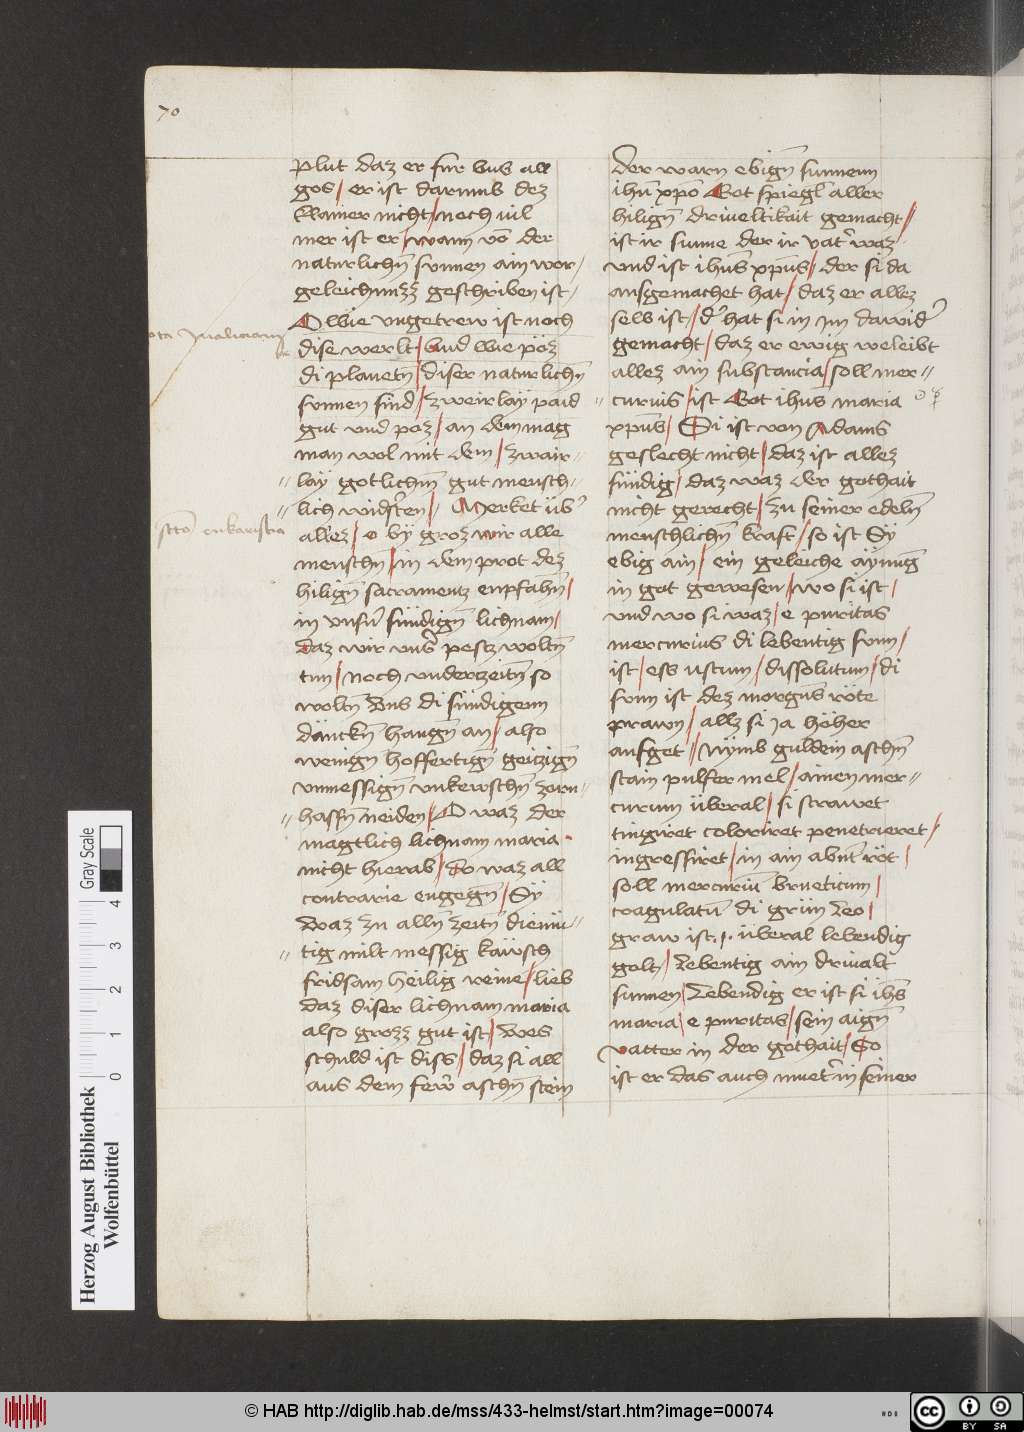 70
plut daz er fur vns all
gos / er ist darumb dez
klainer nicht / noch vil
mer ist er / wann võ der
naturlichñ sunnen ain vor-
geleichnuzz geschriben ist /
O wie vngetrew ist noch
dise werlt / Vnd wie pöz
di planetñ / diser naturlichñ
sunnen sind / zweirlay paid
gut vnd poz / an dem mag
man wol mit dem / zwair=
lay gotlichem gut mensch=
lich widsten / Merket üb
allez / e by groz wir alle
menschñ / in dem prot dez
hiligñ sacramentz enpfahñ /
in vnsñ sündigñ lichnam /
daz wir vns pestz woltñ
tun / noch vnderzeitñ so
woltñ Vns di sündigenn
dänckñ hangñ an / also
wenigñ hoffertigñ geizigñ
vnmessigñ vnkewschñ zorn=
haffñ neiden / O waz der
magtlich lichnam maria
nicht hierab / do waz all
contrarie engegñ / Sy
Waz zu allñ zeitñ diemü=
tig milt messig käwsch
fridsam heilig reine / lieb
daz diser lichnam maria
also grozz gut ist / Wes
schuld ist diss / daz si all
aus dem fewr aschñ stein
der warn ebigñ sunnenn
ihũ xpõ Got spiegl aller
hiligñ driueltikait gemacht /
ist ir sunne der ir vat waz
vnd ist ihus xpus / der si da
ausgemachet hat / daz er allez
selb ist / d hat si in im dawid
gemacht / daz er ewig weleibt
allez ain substancia / soll mer=
curius / ist Got ihus maria
xpus / Si ist von Adams
geslecht nicht / daz ist allez
sündig / daz waz der gothait
nicht gerecht / zu seiner edelñ
menschlichñ kraft / so ist Sy
ebig ain / ein geleiche aynug
in got gewesen / wo si ist /
vnd wo si waz / e puritas
mercurius di lebentig sunn /
ist / ess ustum / dissolutum / di
sunn ist dez morgens röte
prawn / allz si ia höher
aufget / Nymb guldein aschñ
stain pulfer mel / ainen mer=
curium überal / si strawet
tingiret coloriret penetrieret /
ingressiret / in ain abnt röt /
soll mercuriũ brueticum /
coagulatũ di grün Leo /
graw ist . i . überal lebendig
golt / Lebentig ain driualt
sunnen / Lebendig er ist si ihs
maria / e puritas / sein aigñ
vatter in der gothait / So
ist er das auch muet in seiner
Herzog August Bibliothek
Wolfenbüttel
0 1 2 3 4
Gray Scale
© HAB http://diglib.hab.de/mss/433-helmst/start.htm?image=00074
cc BY SA